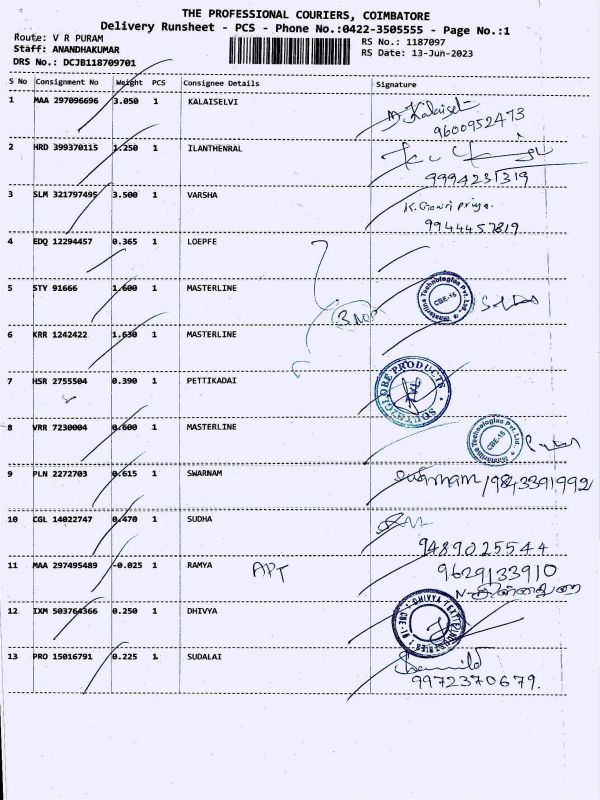 THE PROFESSIONAL COURIERS, COIMBATORE
Delivery Runsheet - PCS - Phone No.:0422-3505555 - Page No.:1
Route: V R PURAM
RS No.: 1187097
Staff: ANANDHAKUMAR
RS Date: 13-Jun-2023
DRS No.: DCJB118709701
S No Consignment No Weight PCS Consignee Details Signature
1 MAA 297096696 3.050 1 KALAISELVI
M. Kalaiselvi
9600952473
2 HRD 399370115 1.250 1 ILANTHENRAL
9994231319
3 SLM 321797495 3.500 1 VARSHA K. Gowri Priya.
9944457819
4 EDQ 12294457 0.365 1 LOEPFE
5 STY 91666 1.600 1 MASTERLINE
Masterline Technologies Pvt. Ltd. CBE-15
6 KRR 1242422 1.630 1 MASTERLINE
7 HSR 2755504 0.390 1 PETTIKADAI
SOUTHGLOBE PRODUCTS
8 VRR 7230004 0.600 1 MASTERLINE
Masterline Technologies Pvt. Ltd. CBE-15
9 PLN 2272703 0.615 1 SWARNAM swarnam/9843391992
10 CGL 14022747 0.470 1 SUDHA
9489025544
11 MAA 297495489 -0.025 1 RAMYA APT 9629133910
12 IXM 503764366 0.250 1 DHIVYA
13 PRO 15016791 0.225 1 SUDALAI
9972370679.